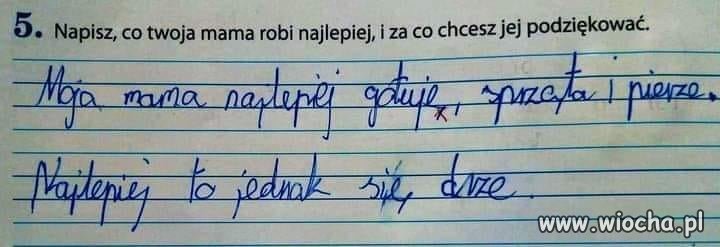 5. Napisz, co twoja mama robi najlepiej, i za co chcesz jej podziękować.
Moja mama najlepiej gotuje, sprząta i pierze.
Najlepiej to jednak się drze.
www.wiocha.pl